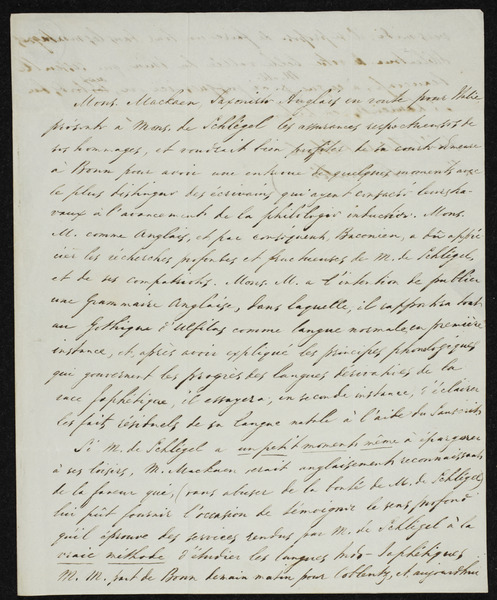 Mons. Macksen, Saxoniste-Anglais en route pour l'Italie
présente à Mons. de Schlegel les assurances respectueuses de
ses hommages, et voudrait bien profiter de sa courte demeure
à Bonn pour avoir une entrevue de quelques moments avec
le plus distingué des écrivains, qui ayent consacré leurs tra-
vaux à l'avancement de la philologie inductive. Mons.
M. comme Anglais, et par conséquent, Baconien, a dû appré-
cier les recherches profondes et fructueuses de M. de Schlegel,
et de ses compatriots. Mons. M. a l'intention de publier
une Grammaire Anglaise, dans laquelle, il rapportera tout
au Gothique d'Ulfilas comme langue normale, en première
instance, et, après avoir expliqué les principes phonologiques
qui gouvernent les progrès des langues dérivatives de la
race Japhétique, il essayera, en seconde instance, d'éclairer
les faits résiduels de sa langue natale à l'aide du Sanscrit.
Si M. de Schlegel a un petit moment même à épargner
à ses loisirs, M. Macksen serait anglaisement reconnaissant
de la faveur qui, (sans abuser de la bonté de M. de Schlegel)
lui pût fournir l'occasion de témoigner le sens profond
qu'il éprouve des services rendus par M. de Schlegel à la
vraie méthode d'étudier les langues Indo-Japhétiques
M. M. part de Bonn demain matin pour Coblentz, et aujourdhui